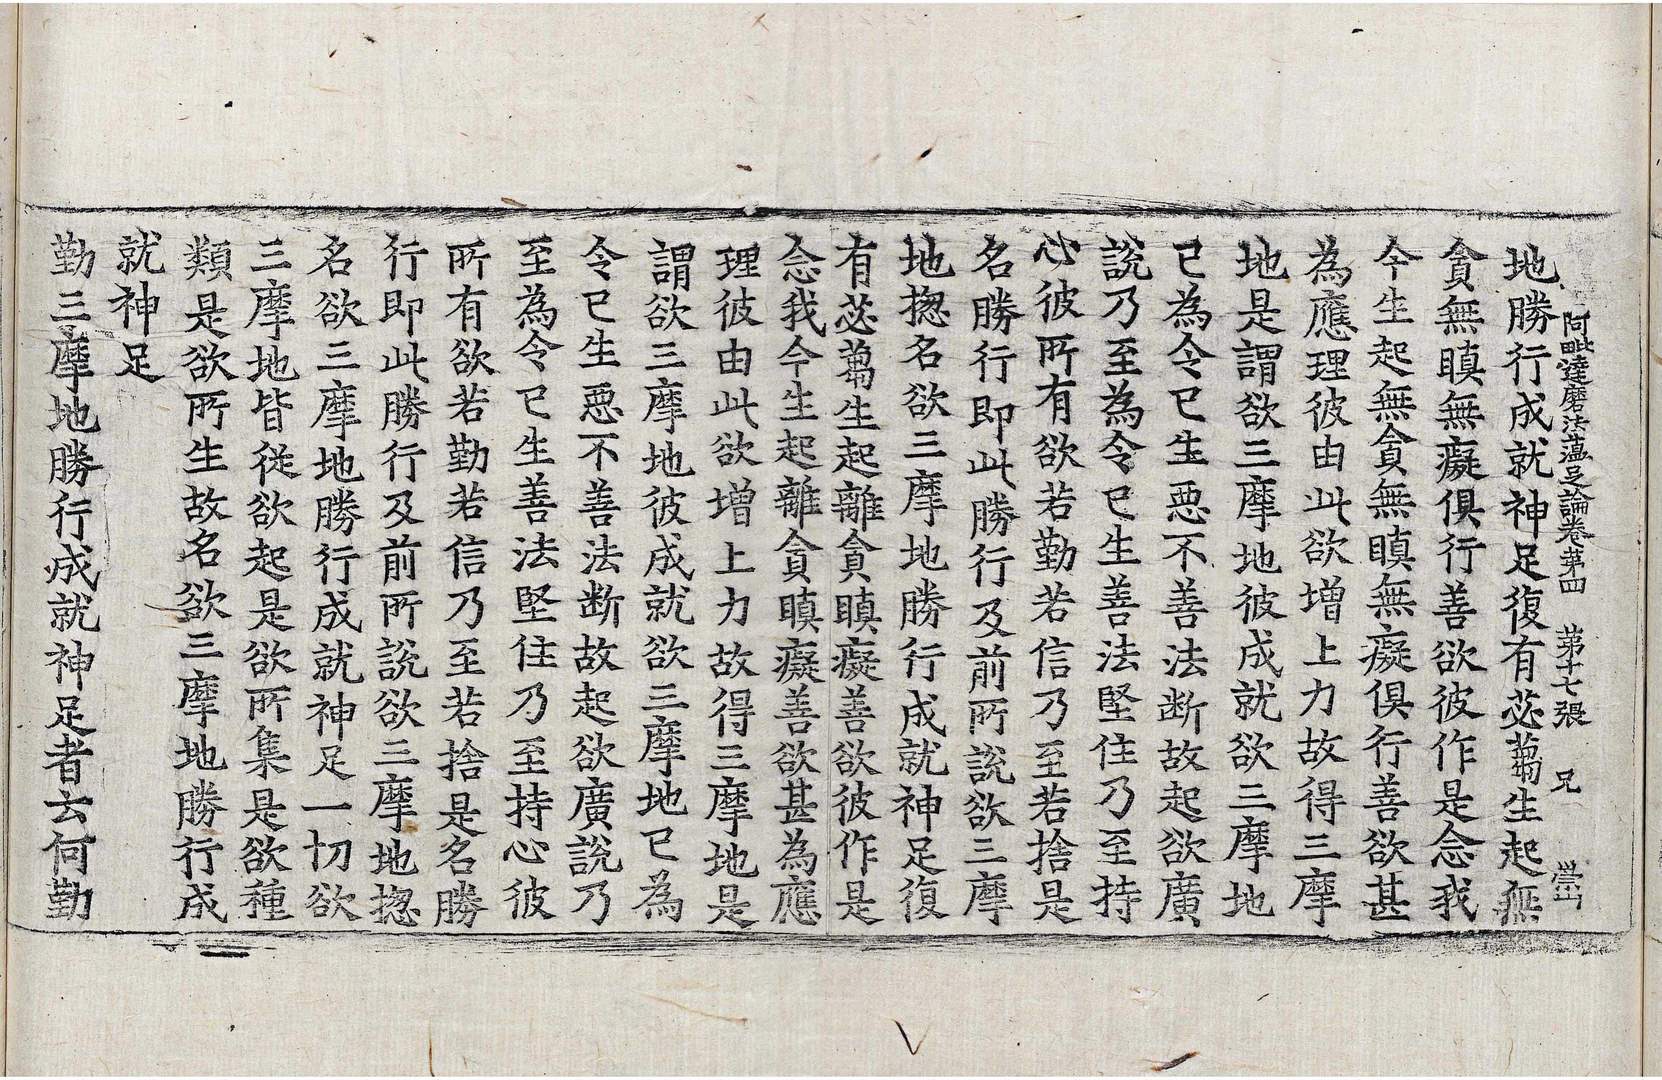 阿毗達磨法蘊足論卷第四　第十七張　兄
地勝行成就神足復有苾蒭生起無
貪無瞋無癡俱行善欲彼作是念我
今生起無貪無瞋無癡俱行善欲甚
為應理彼由此欲增上力故得三摩
地是謂欲三摩地彼成就欲三摩地
已為令已生惡不善法断故起欲廣
說乃至為令已生善法堅住乃至持
心彼所有欲若勤若信乃至若捨是
名勝行即此勝行及前所說欲三摩
地揔名欲三摩地勝行成就神足復
有苾蒭生起離貪瞋癡善欲彼作是
念我今生起離貪瞋癡善欲甚為應
理彼由此欲增上力故得三摩地是
謂欲三摩地彼成就欲三摩地已為
令已生惡不善法断故起欲廣說乃
至為令已生善法堅住乃至持心彼
所有欲若勤若信乃至若捨是名勝
行即此勝行及前所說欲三摩地揔
名欲三摩地勝行成就神足一切欲
三摩地皆從欲起是欲所集是欲種
類是欲所生故名欲三摩地勝行成
就神足
勤三摩地勝行成就神足者云何勤